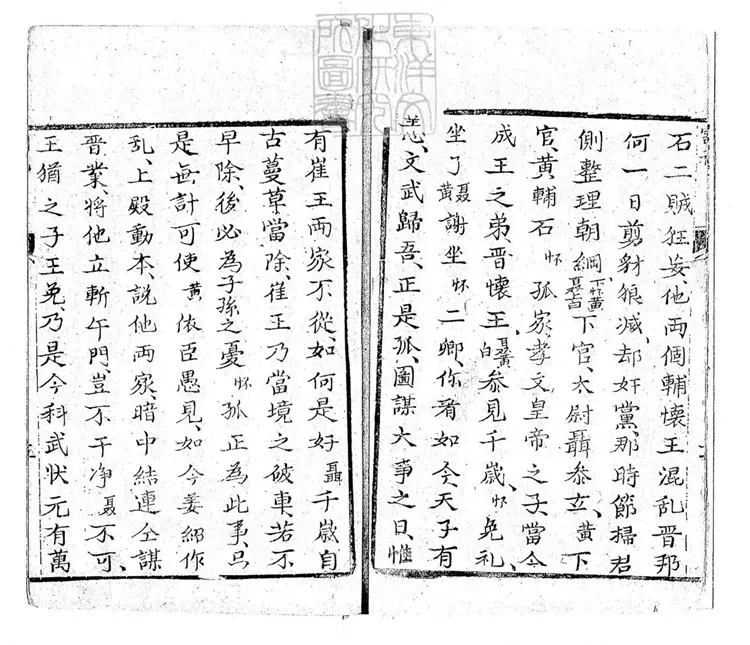 石二賊狂妄、他両個輔懷王混乱晋邦
何一日剪豺狼滅、却奸黨、那時節掃君
側整理朝綱、下怀黄聶占下官、太尉聶叅玄、黄下
官、黄輔石怀孤家孝文皇帝之子、當今
成王之弟、晋懷王、聶黄白叅見千歲、怀免礼、
坐了聶黄謝坐怀二卿、你看如今、天子有
恙、文武歸吾、正是孤、圖謀大事之日、惟
有崔王両家不從、如何是好聶千歲自
古蔓草當除、崔王乃當境之破車、若不
早除、後必為子孫之憂怀孤正為此事、只
是無計可使黄依臣愚見、如今姜紹作
乱、上殿動本、說他両家、暗中結連仝謀
晋業、將他立斬午門、豈不干净聶不可、
王猶之子王免、乃是今科武狀元有萬